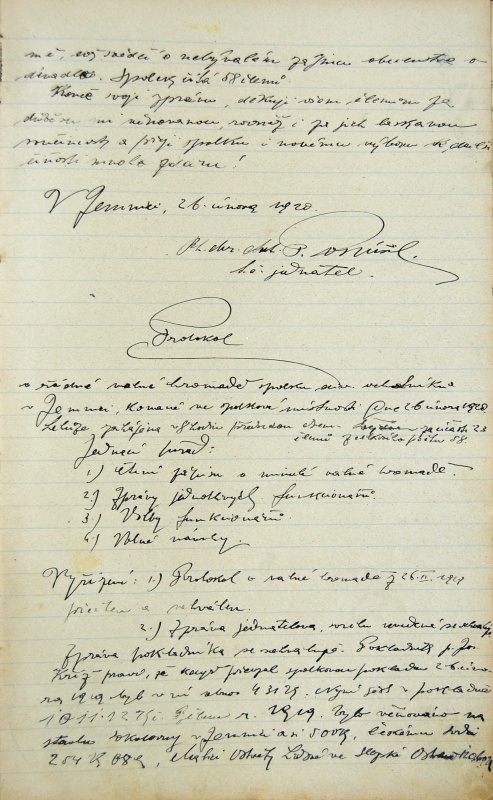 mě, svědčí o nebývalém zájmu obecenstva o
divadlo. Spolek čítá 58 členů.
Konče svoji zprávu, děkuji všem členům za
důvěru mi věnovanou, rovněž i za jich laskavou
součinnost a přeji spolku i novému výboru k další
činnosti mnoho zdaru!
V Jemnici, 26. února 1920.
t. č. jednatel.
Protokol
o řádné valné hromadě spolku div. ochotníků
v Jemnici, konané ve spolkové místnosti dne 26 února 1920
Schůze zahájena v 8 hodin předsedou za účasti 23
členů z celkového počtu 58.
Jednací pořad:
1.) Čtení zápisu o minulé valné hromadě.
2.) Zprávy jednotlivých funkcionářů.
3.) Volby funkcionářů.
4.) Volné návrhy.
Vyřízení: 1.) Protokol o valné hromadě z 26.II. 1919
přečten a schválen.
2.) Zpráva jednatelova,
Zpráva pokladníka se schvaluje. Pokladník p. Jos.
Kříž praví, že když převzal spolkovou pokladnu 26. úno-
ra 1919 byl v ní obnos Nyní jest v pokladně
r. 1919. bylo věnováno na
stavbu sokolovny v Jemnici 500 K, Českému srdci
254 K 08 h, Matici Osvěty Lidové ve Slezské Ostravě